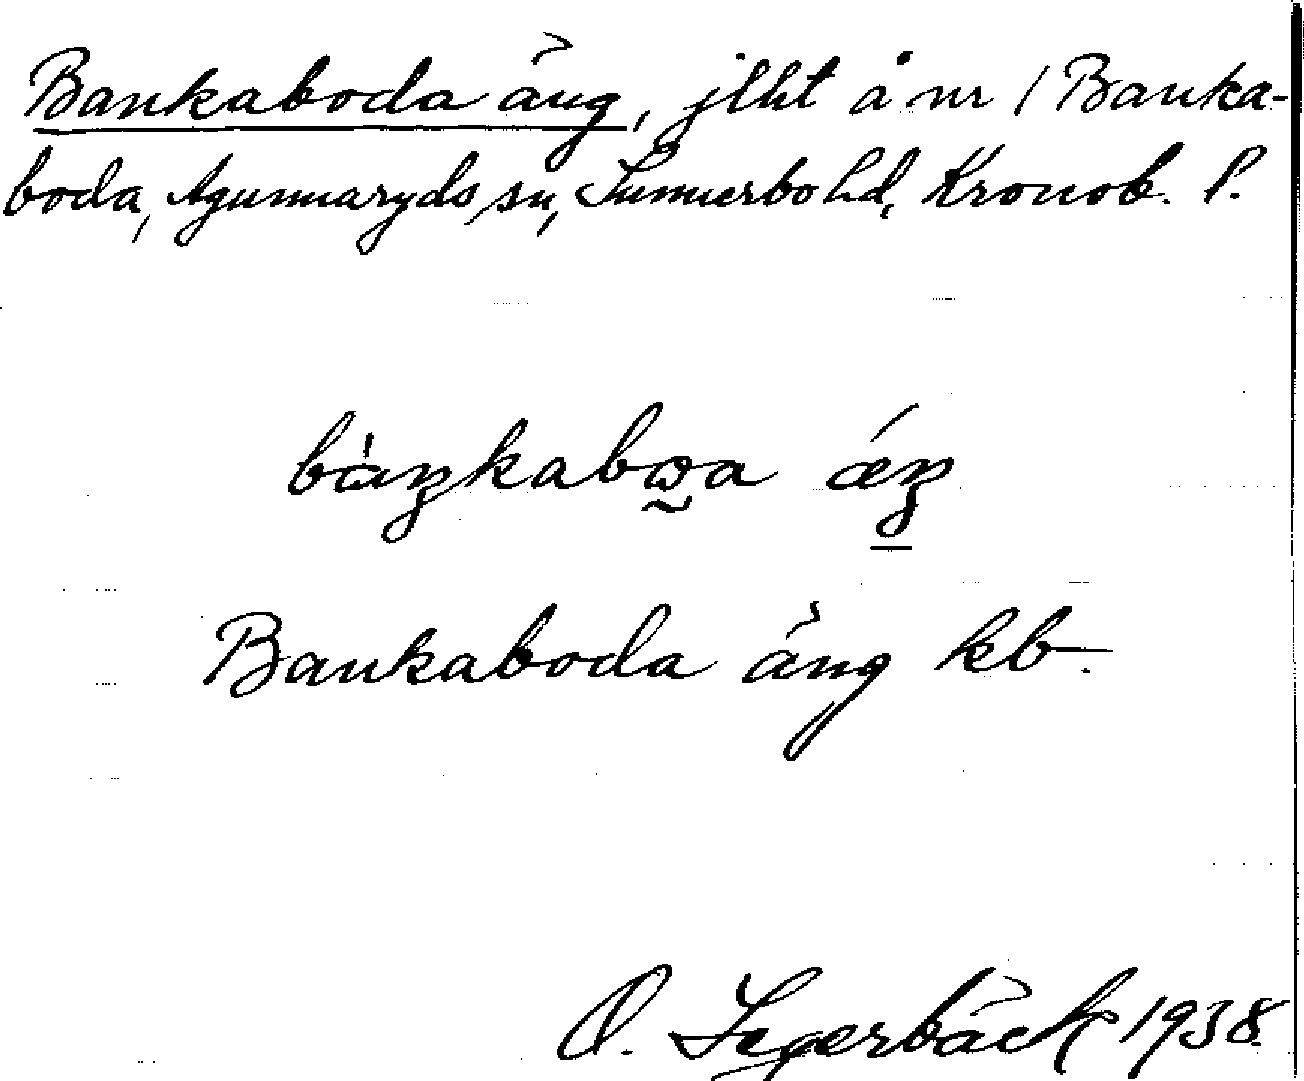 Bankaboda äng, jlht å nr 1 Banka-
boda, Agunnaryds sn, Sunnerbo hd, Kronob. l.
bàŋkabωa ǽŋ
Bankaboda äng kb.
O. Segerbäck 1938.